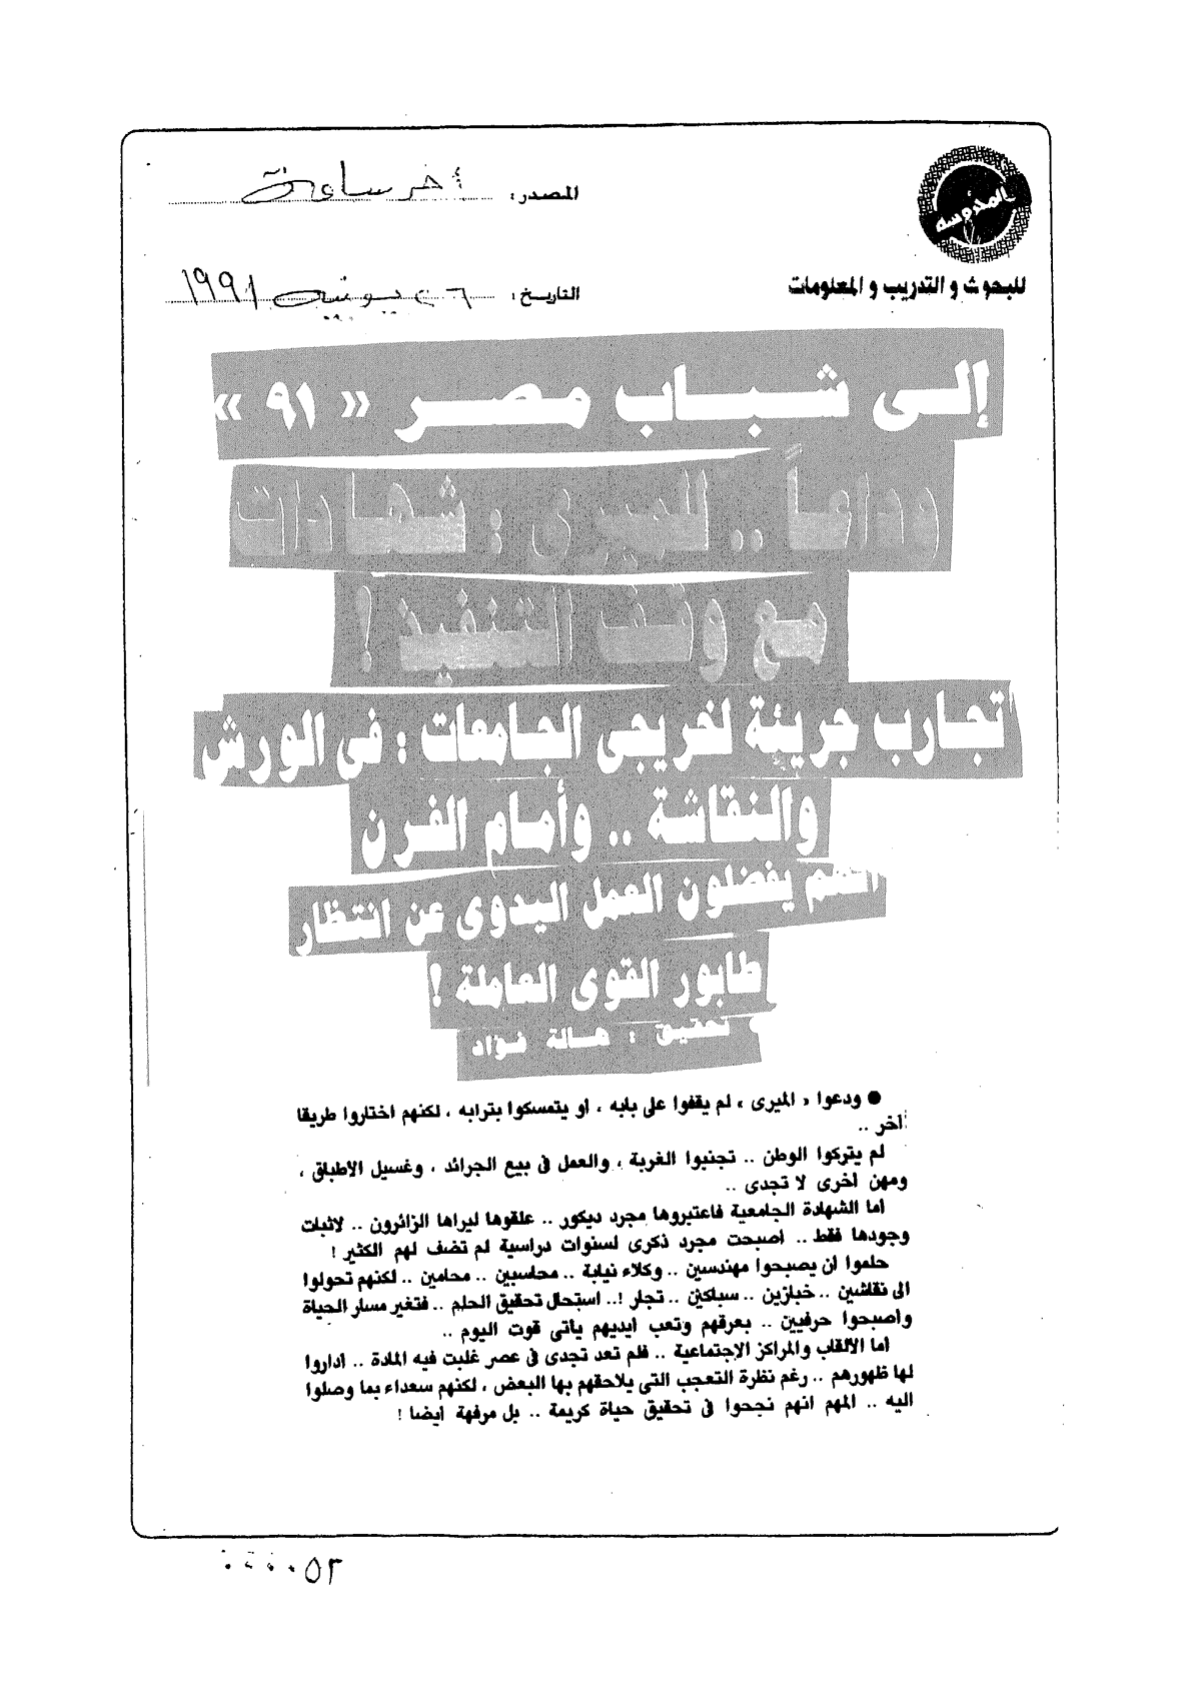 المصدر: آخر ساعة
المحروسه
للبحوث و التدريب و المعلومات
التاريخ: ٢٦ يونيه ١٩٩١
إلى شباب مصر « ٩١ »
وداعاً .. للميرى : شهادات
مع وقف التنفيذ !
تجارب جريئة لخريجى الجامعات : فى الورش
والنقاشة .. وأمام الفرن
انهم يفضلون العمل اليدوى عن انتظار
طابور القوى العاملة !
تحقيق : هالة فؤاد
● ودعوا « الميرى » لم يقفوا على بابه ، او يتمسكوا بترابه ، لكنهم اختاروا طريقا
آخر ..
لم يتركوا الوطن .. تجنبوا الغربة ، والعمل فى بيع الجرائد ، وغسيل الاطباق ،
ومهن اخرى لا تجدى ..
أما الشهادة الجامعية فاعتبروها مجرد ديكور .. علقوها ليراها الزائرون .. لاثبات
وجودها فقط .. أصبحت مجرد ذكرى لسنوات دراسية لم تضف لهم الكثير !
حلموا ان يصبحوا مهندسين .. وكلاء نيابة .. محاسبين .. محامين .. لكنهم تحولوا
الى نقاشين .. خبازين .. سباكين .. تجار !.. استحال تحقيق الحلم .. فتغير مسار الحياة
واصبحوا حرفيين .. بعرقهم وتعب ايديهم يأتى قوت اليوم ..
اما الألقاب والمراكز الاجتماعية .. فلم تعد تجدى فى عصر غلبت فيه المادة .. اداروا
لها ظهورهم .. رغم نظرة التعجب التى يلاحقهم بها البعض ، لكنهم سعداء بما وصلوا
اليه .. المهم انهم نجحوا فى تحقيق حياة كريمة .. بل مرفهة أيضا !